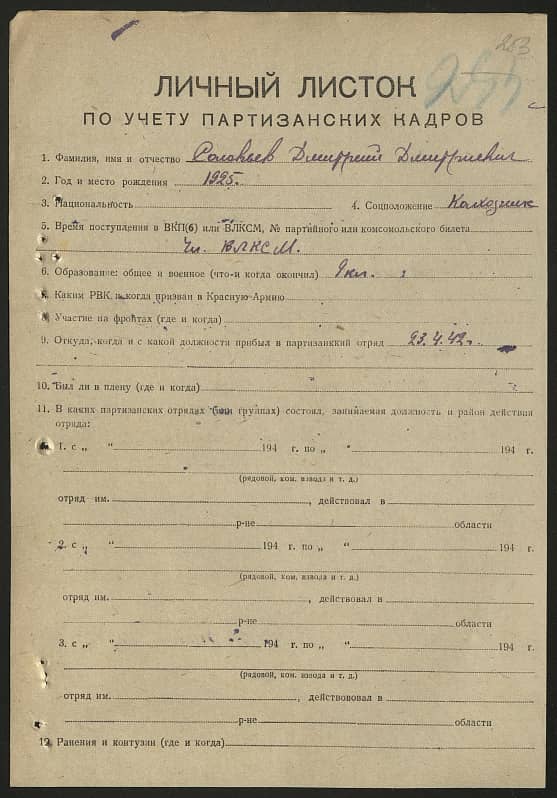 253
ЛИЧНЫЙ ЛИСТОК
ПО УЧЕТУ ПАРТИЗАНСКИХ КАДРОВ
1. Фамилия, имя и отчество Соловьев Дмитрий Дмитриевич
2. Год и место рождения 1925.
3. Национальность 4. Соцположение Колхозник
5. Время поступления в ВКП(б) или ВЛКСМ, № партийного или комсомольского билета
Чл. ВЛКСМ.
6. Образование: общее и военное (что-и когда окончил) 9 кл.
7. Каким РВК и когда призван в Красную Армию
8. Участие на фронтах (где и когда)
9. Откуда, когда и с какой должности прибыл в партизанкий отряд 23.4.42 г.
10. Был ли в плену (где и когда)
11. В каких партизанских отрядах (или группах) состоял, занимаемая должность и район действия
отряда:
1. с „ “ 194 г. по „ “ 194 г.
(рядовой, ком. взвода и т. д.)
отряд им. , действовал в
р-не области
2. с „ “ 194 г. по „ “ 194 г.
(рядовой, ком. взвода и т. д.)
отряд им. , действовал в
р-не области
3. с „ “ 194 г. по „ “ 194 г.
(рядовой, ком. взвода и т. д.)
отряд им. , действововал в
р-не области
12. Ранения и контузии (где и когда)